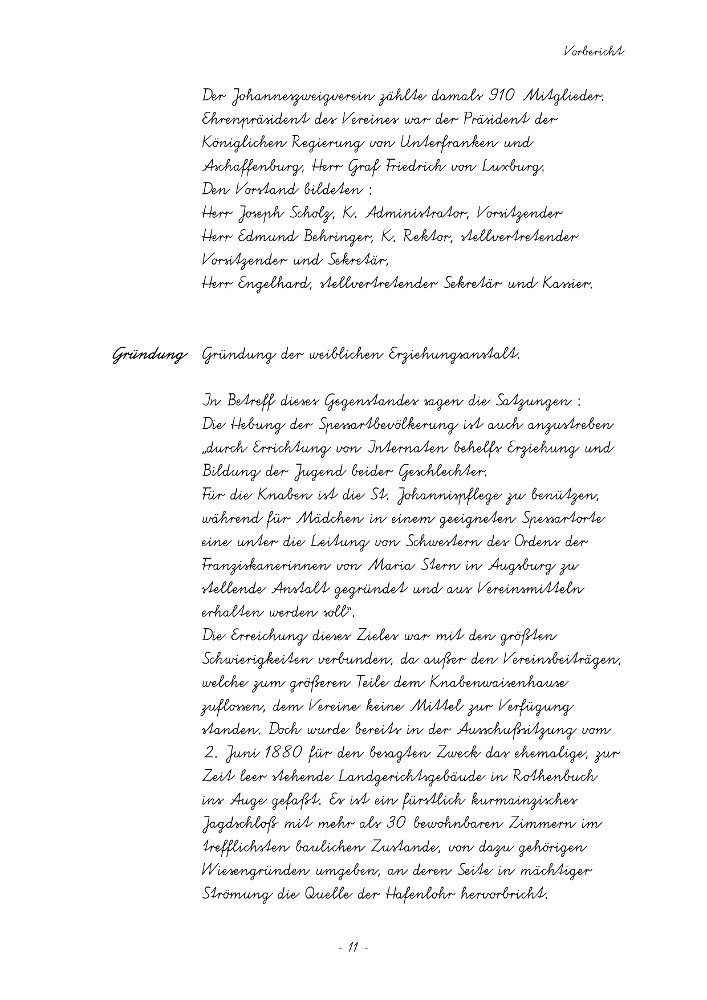 Vorbericht
Der Johanneszweigverein zählte damals 910 Mitglieder.
Ehrenpräsident des Vereines war der Präsident der
Königlichen Regierung von Unterfranken und
Aschaffenburg, Herr Graf Friedrich von Luxburg.
Den Vorstand bildeten :
Herr Joseph Scholz, K. Administrator, Vorsitzender
Herr Edmund Behringer, K. Rektor, stellvertretender
Vorsitzender und Sekretär,
Herr Engelhard, stellvertretender Sekretär und Kassier.
Gründung Gründung der weiblichen Erziehungsanstalt.
In Betreff dieses Gegenstandes sagen die Satzungen :
Die Hebung der Spessartbevölkerung ist auch anzustreben
„durch Errichtung von Internaten behelfs Erziehung und
Bildung der Jugend beider Geschlechter.
Für die Knaben ist die St. Johannispflege zu benützen,
während für Mädchen in einem geeigneten Spessartorte
eine unter die Leitung von Schwestern des Ordens der
Franziskanerinnen von Maria Stern in Augsburg zu
stellende Anstalt gegründet und aus Vereinsmitteln
erhalten werden soll“.
Die Erreichung dieses Zieles war mit den größten
Schwierigkeiten verbunden, da außer den Vereinsbeiträgen,
welche zum größeren Teile dem Knabenwaisenhause
zuflossen, dem Vereine keine Mittel zur Verfügung
standen. Doch wurde bereits in der Ausschußsitzung vom
2. Juni 1880 für den besagten Zweck das ehemalige, zur
Zeit leer stehende Landgerichtsgebäude in Rothenbuch
ins Auge gefaßt. Es ist ein fürstlich kurmainzisches
Jagdschloß mit mehr als 30 bewohnbaren Zimmern im
trefflichsten baulichen Zustande, von dazu gehörigen
Wiesengründen umgeben, an deren Seite in mächtiger
Strömung die Quelle der Hafenlohr hervorbricht.
- 11 -